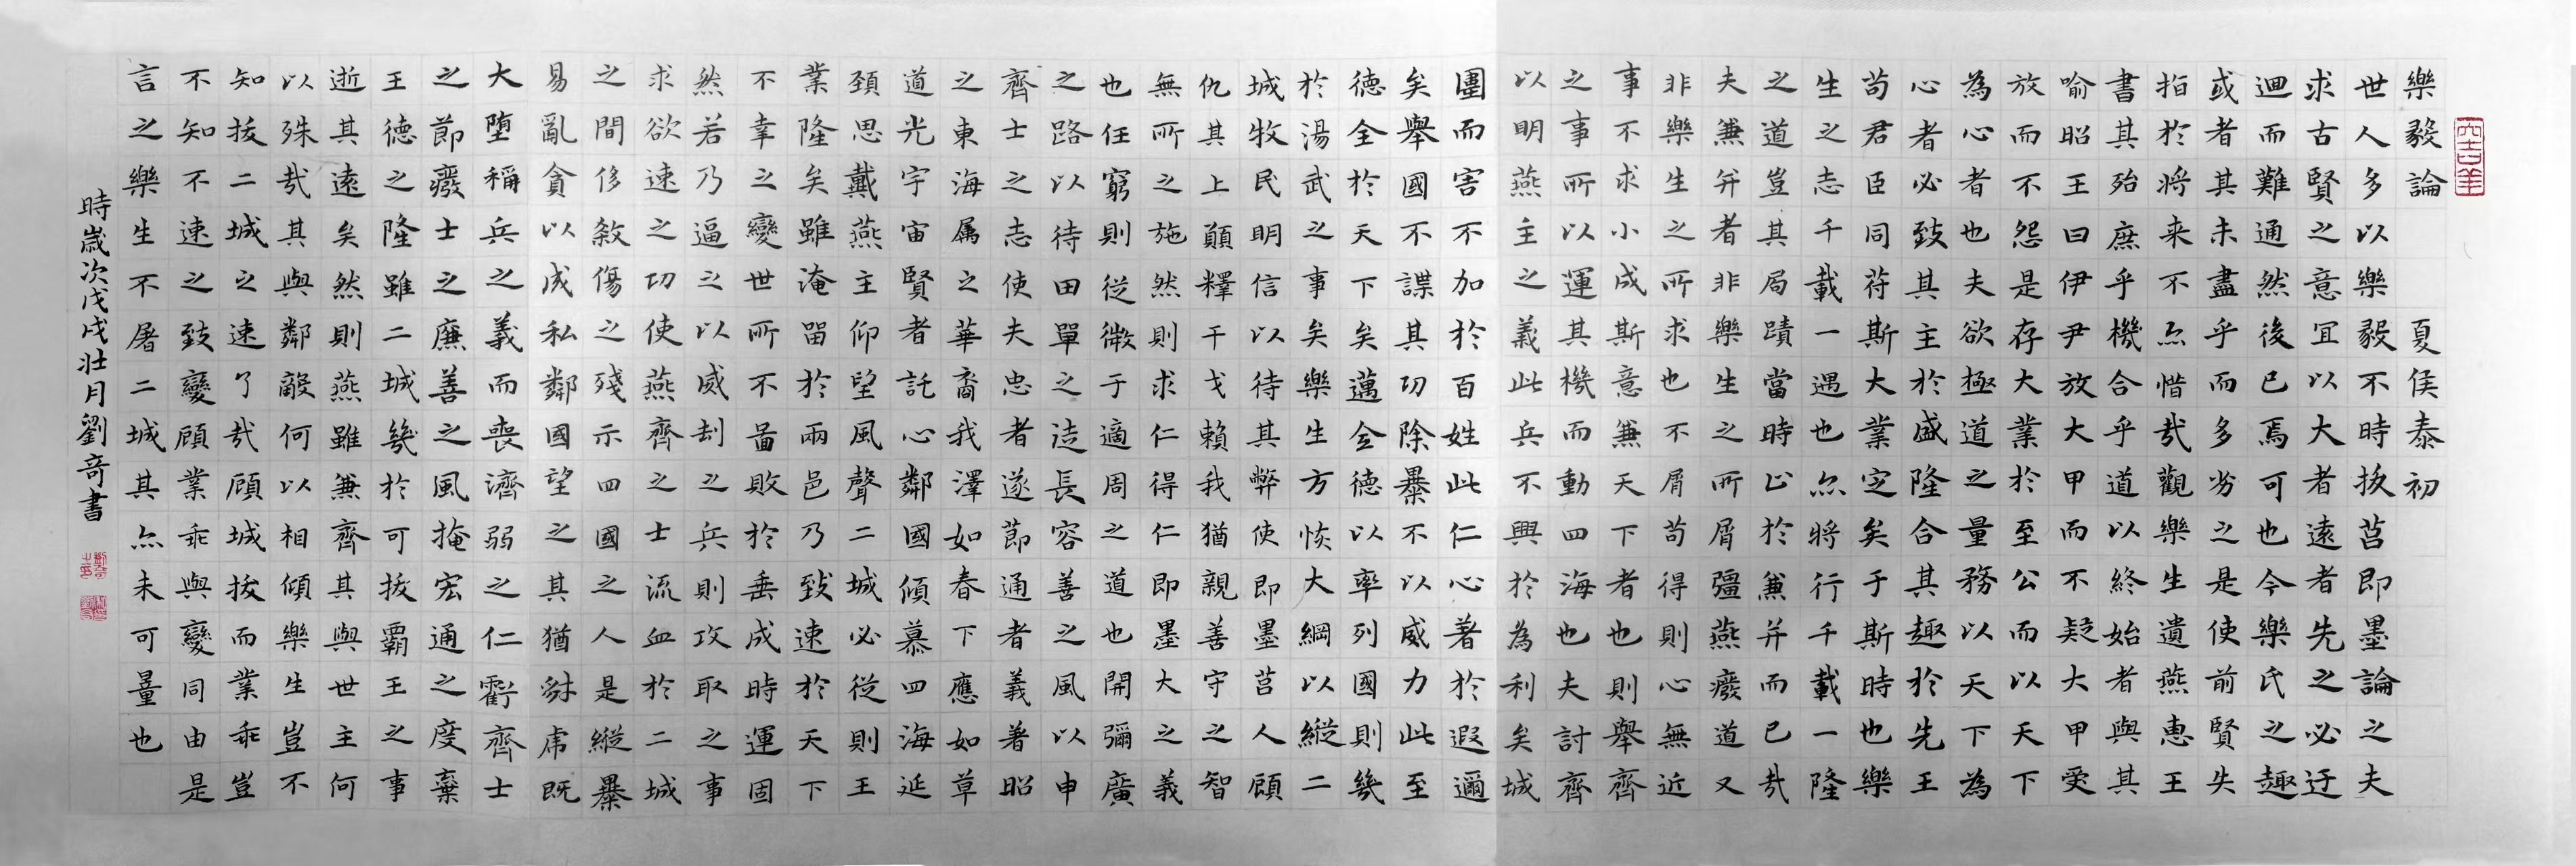 樂毅論 夏侯泰初
世人多以樂毅不時拔莒即墨論之夫
求古賢之意宜以大者遠者先之必迂
迴而難通然後已焉可也今樂氏之趣
或者其未盡乎而多劣之是使前賢失
指於將来不亦惜哉觀樂生遺燕惠王
書其殆庶乎機合乎道以終始者與其
喻昭王曰伊尹放大甲而不疑大甲受
放而不怨是存大業於至公而以天下
為心者也夫欲極道之量務以天下為
心者必致其主於盛隆合其趣於先王
苟君臣同苻斯大業定矣于斯時也樂
生之志千載一遇也亦將行千載一隆
之道豈其局蹟當時止於兼并而已哉
夫兼并者非樂生之所屑彊燕癈道又
非樂生之所求也不屑苟得則心無近
事不求小成斯意兼天下者也則舉齊
之事所以運其機而動四海也夫討齊
以明燕主之義此兵不興於為利矣城
圍而害不加於百姓此仁心著於遐邇
矣舉國不謀其功除暴不以威力此至
德全於天下矣邁全德以率列國則幾
於湯武之事矣樂生方恢大綱以縱二
城牧民明信以待其弊使即墨莒人顧
仇其上願釋干戈賴我猶親善守之智
無所之施然則求仁得仁即墨大之義
也任窮則從微于適周之道也開彌廣
之路以待田單之徒長容善之風以申
齊士之志使夫忠者遂節通者義著昭
之東海属之華裔我澤如春下應如草
道光宇宙賢者託心鄰國傾慕四海延
頸思戴燕主仰望風聲二城必從則王
業隆矣雖淹留於兩邑乃致速於天下
不幸之變世所不啚敗於垂成時運固
然若乃逼之以威刦之兵則攻取之事
求欲速之功使燕齊之士流血於二城
之間侈敚傷之殘示四國之人是縱暴
易亂貪以成私鄰國望之其猶豺虎既
大墮稱兵之義而喪濟弱之仁虧齊士
之節癈士之廉善之風掩宏通之度棄
王德之隆雖二城幾於可拔霸王之事
逝其遠矣然則燕雖兼齊其與世主何
以殊哉其與鄰敵何以相傾樂生豈不
知拔二城之速了哉顧城拔而業乖豈
不知不速之致變顧業乖與變同由是
言之樂生不屠二城其亦未可量也
時嵗次戊戌壮月劉奇書